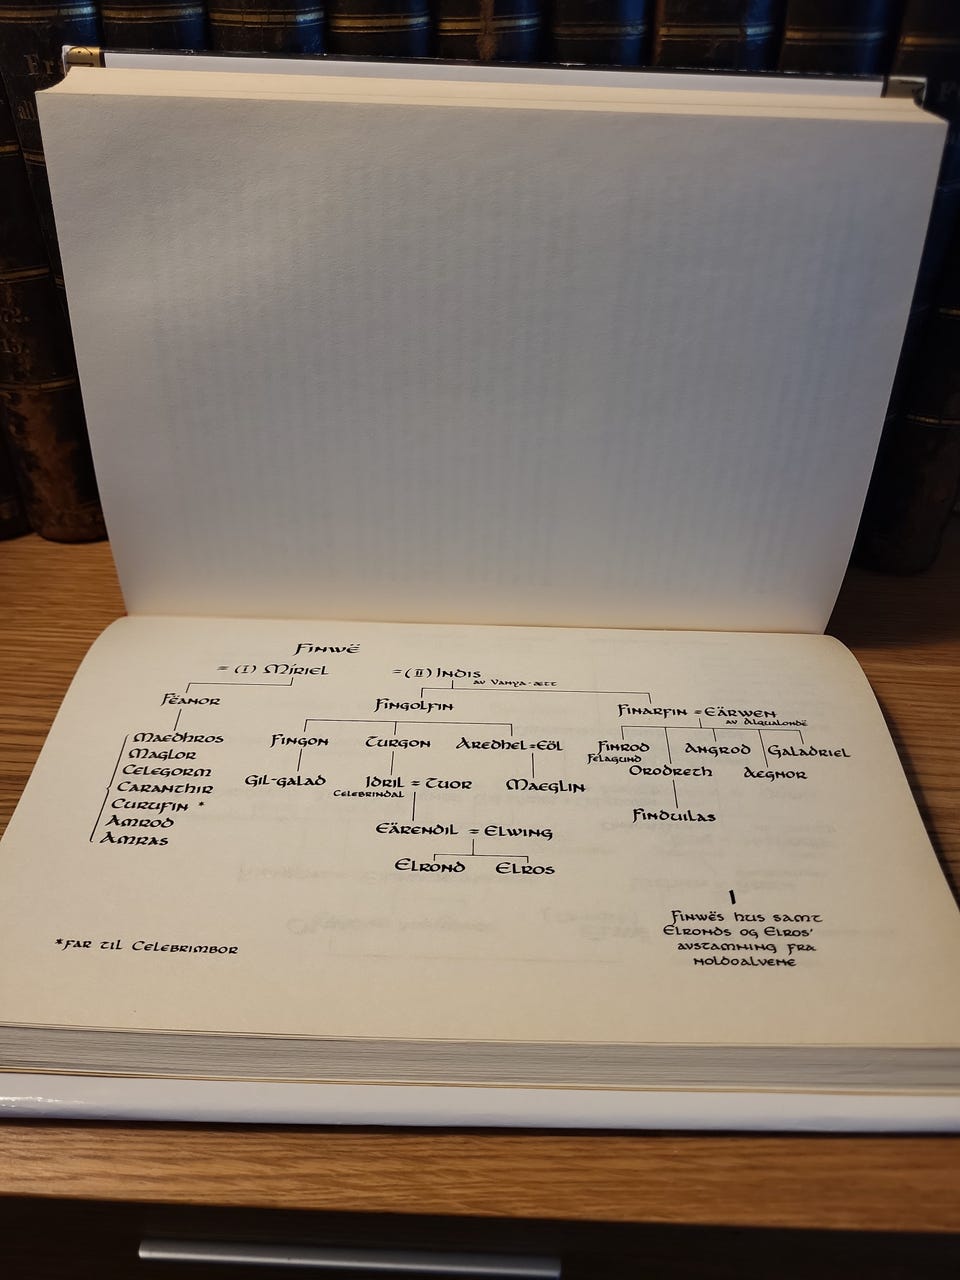 Finwë
= (I) Míriel = (II) Indis
av Vanya-ætt
Fëanor Fingolfin Finarfin = Eärwen
av Alqualondë
Maedhros Fingon Turgon Aredhel = Eöl Finrod Angrod Galadriel
Felagund
Maglor
Celegorm Orodreth Aegnor
Caranthir Gil-galad Idril = Tuor Maeglin
Celebrindal
Curufin *
Amrod Finduilas
Amras Eärendil = Elwing
Elrond Elros
I
Finwës hus samt
Elronds og Elros'
avstamning fra
noldoalvene
*far til Celebrimbor